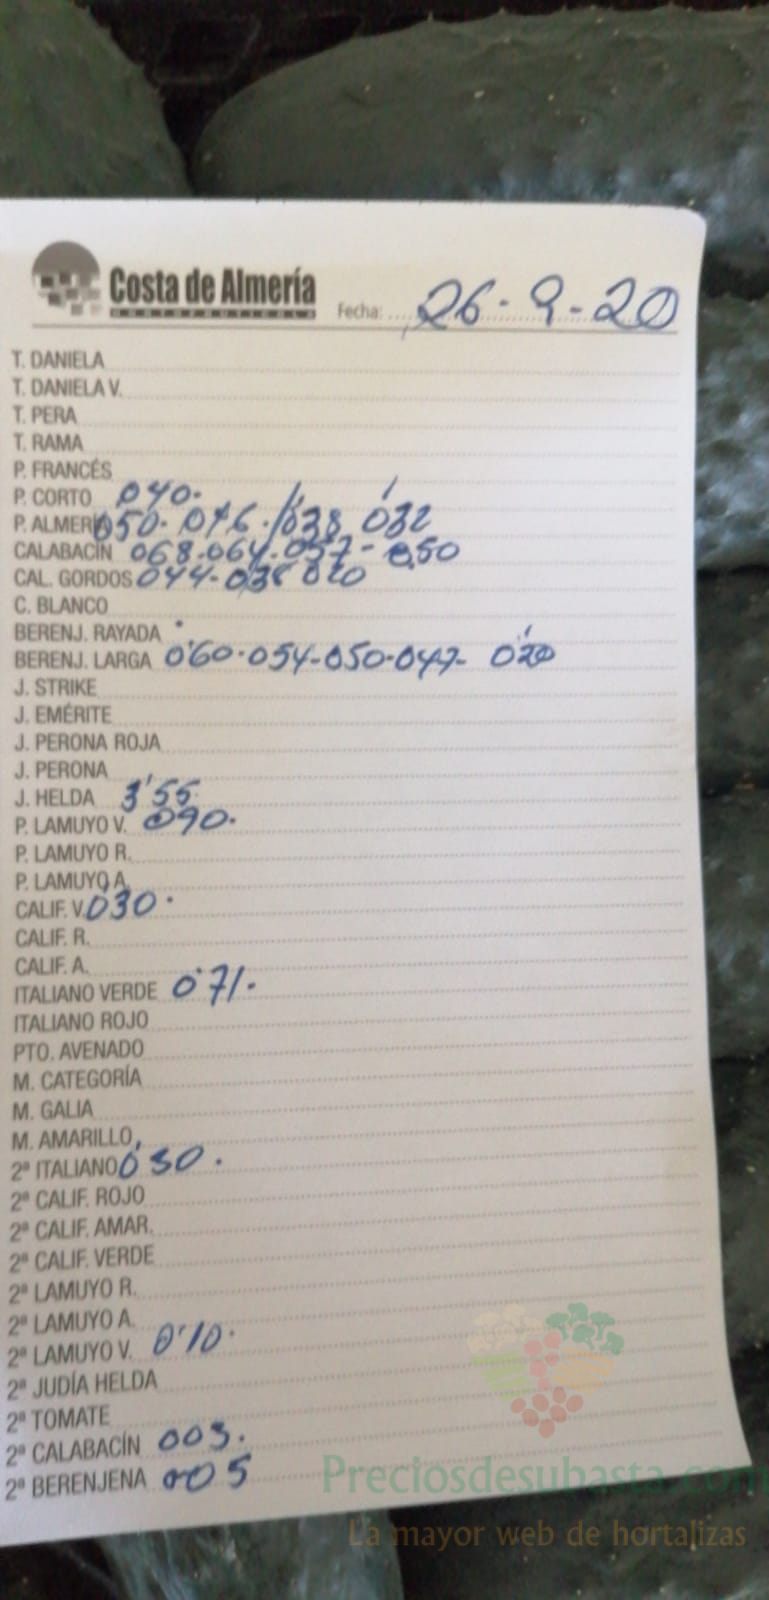 Costa de Almería
HORTOFRUTICOLA
Fecha: 26-9-20
T. DANIELA
T. DANIELA V.
T. PERA
T. RAMA
P. FRANCÉS
P. CORTO 040.
P. ALMERÍA 050. 046. / 0'38 0'32
CALABACÍN 068-064-057-050
CAL. GORDOS 044-038 020
C. BLANCO
BERENJ. RAYADA
BERENJ. LARGA 0'60-054-050-047- 0'20
J. STRIKE
J. EMÉRITE
J. PERONA ROJA
J. PERONA
J. HELDA 3'55
P. LAMUYO V. 090.
P. LAMUYO R.
P. LAMUYO A.
CALIF. V. 030.
CALIF. R.
CALIF. A.
ITALIANO VERDE 0'71.
ITALIANO ROJO
PTO. AVENADO
M. CATEGORÍA
M. GALIA
M. AMARILLO
2ª ITALIANO 0'30.
2ª CALIF. ROJO
2ª CALIF. AMAR.
2ª CALIF. VERDE
2ª LAMUYO R.
2ª LAMUYO A.
2ª LAMUYO V. 0'10.
2ª JUDÍA HELDA
2ª TOMATE
2ª CALABACÍN 003.
2ª BERENJENA 005
Preciosdesubasta.com
La mayor web de hortalizas